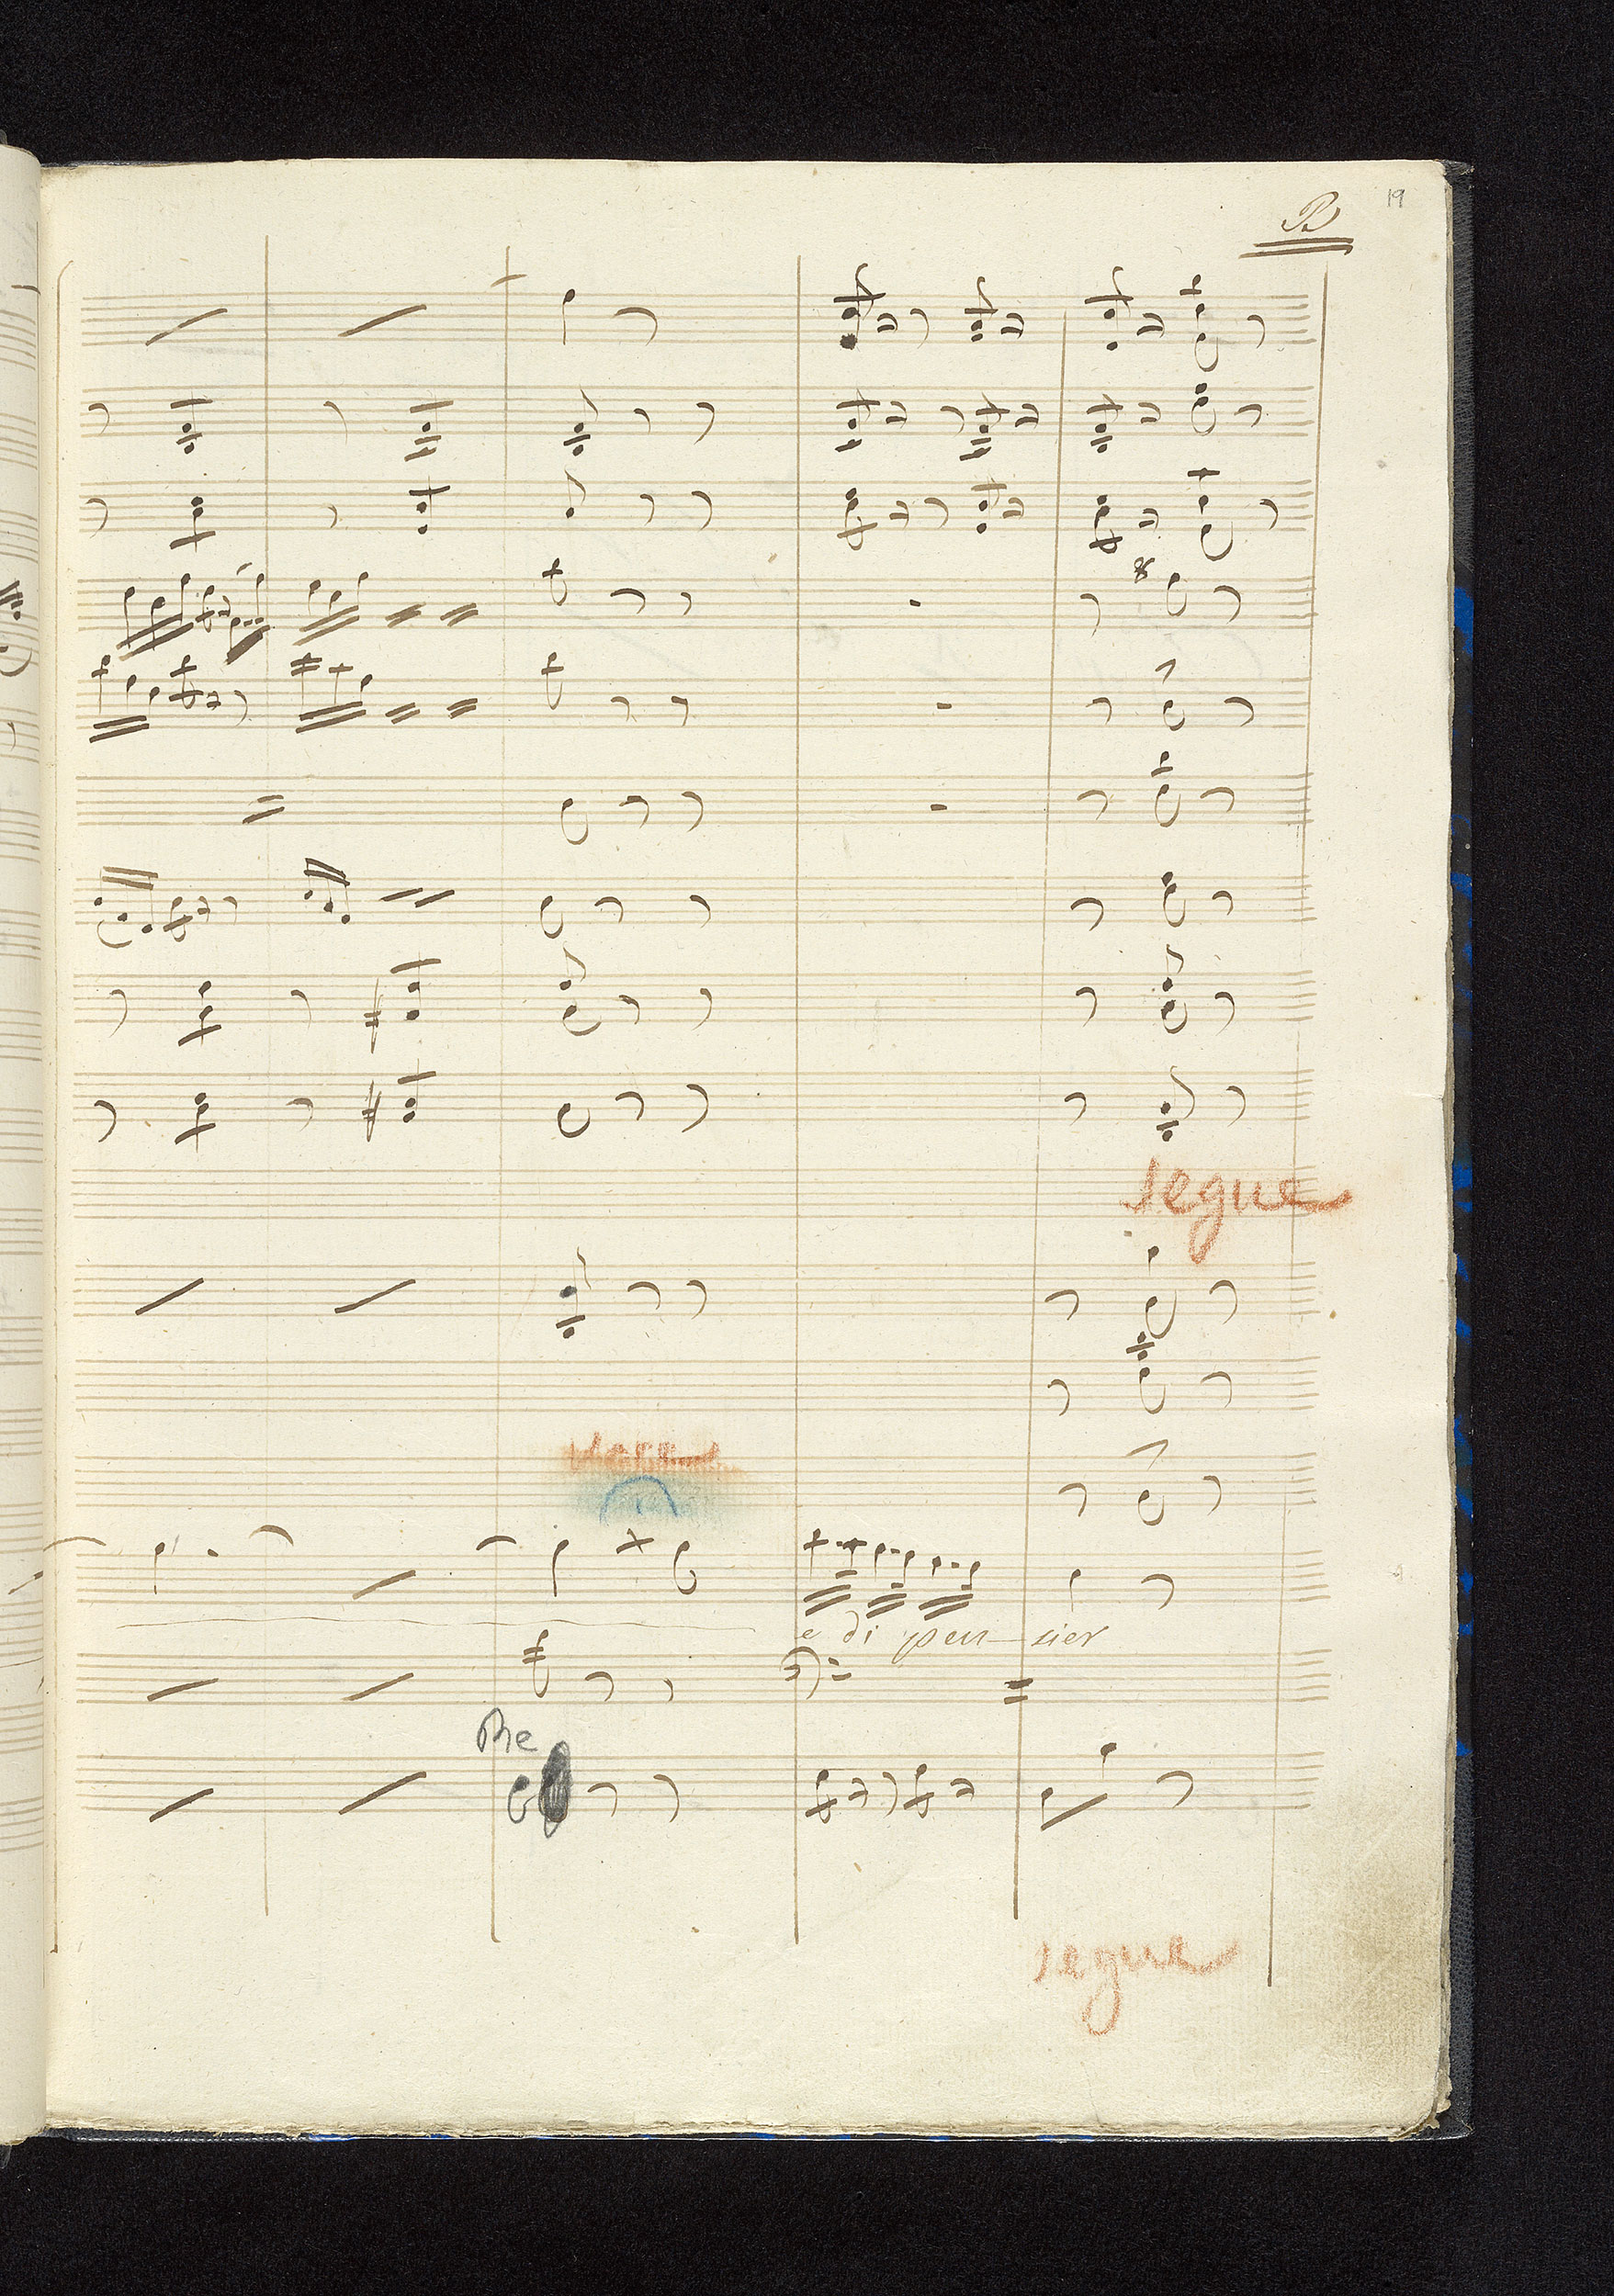 19
B
segue
e di pen-sier
Re
segue